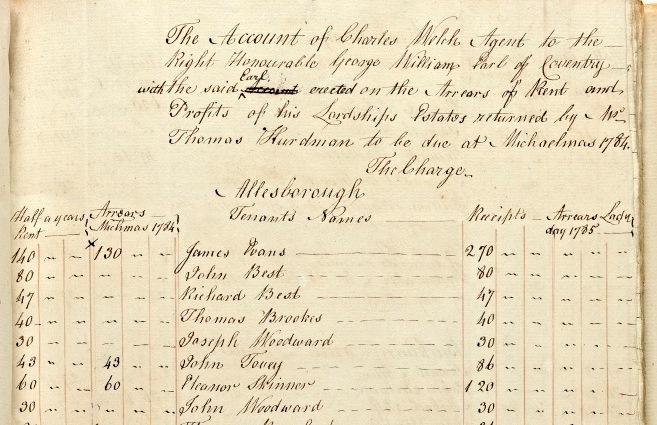 The Account of Charles Welch Agent to the
Right Honourable George William Earl of Coventry
with the said Earl erected on the Arrears of Rent and
Profits of his Lordships Estates returned by Mr.
Thomas Hurdman to be due at Michaelmas 1784.
The Charge
Allesborough
Half a years Rent Arrears Michmas 1784 Tenants Names Receipts Arrears Lady day 1785
140 " " × 130 " " James Evans 270 " " " " "
80 " " " " " John Best 80 " " " " "
47 " " " " " Richard Best 47 " " " " "
40 " " " " " Thomas Brookes 40 " " " " "
30 " " " " " Joseph Woodward 30 " " " " "
43 " " 43 " " John Tovey 86 " " " " "
60 " " 60 " " Eleanor Skinner 120 " " " " "
30 " " " " " John Woodward 30 " " " " "